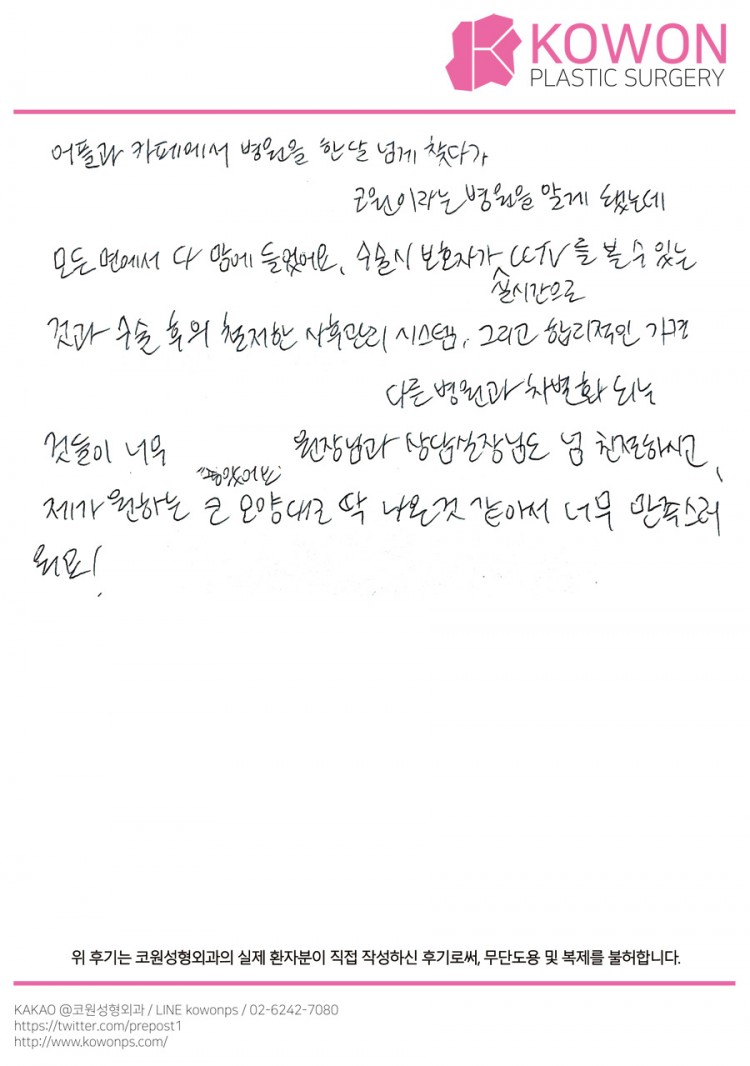 KOWON
PLASTIC SURGERY
어플과 카페에서 병원을 한달 넘게 찾다가
코원이라는 병원을 알게 됐는데
모든 면에서 다 맘에 들었어요. 수술시 보호자가 CCTV를 볼 수 있는
실시간으로
것과 수술 후의 철저한 사후관리 시스템, 그리고 합리적인 가격
다른 병원과 차별화 되는
것들이 너무 원장님과 상담실장님도 넘 친절하시고,
좋았어요
제가 원하는 코 모양대로 딱 나온것 같아서 너무 만족스러
워요!
위 후기는 코원성형외과의 실제 환자분이 직접 작성하신 후기로써, 무단도용 및 복제를 불허합니다.
KAKAO @코원성형외과 / LINE kowonps / 02-6242-7080
https://twitter.com/prepost1
http://www.kowonps.com/